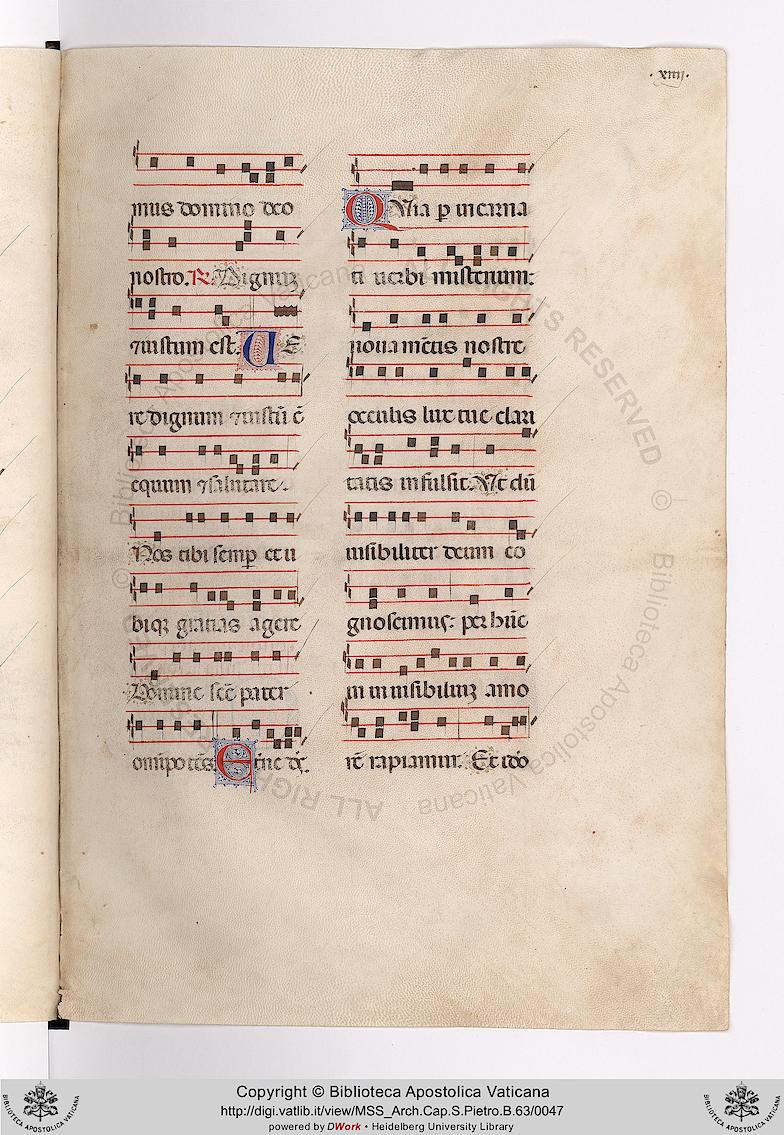 ·xiiij·
mus domino deo
nostro. R. Dignuz
⁊ iustum est. UE
re dignum ⁊ iustū ē
equum ⁊ salutare.
Nos tibi semꝑ et u
biqꝫ gratias agere
Domine scē pater
omīpotēs. Etne dꝰ.
QNia ꝑ incarna
ti uerbi misterium:
noua mētis nostre
occulis lux tue clari
tatis infulsit. Ut dū
uisibiliter deum co
gnoscimus: per hūc
in inuisibiliuꝫ amo
rē rapiamur. Et ideo
© Biblioteca Apostolica Vaticana
ALL RIGHTS RESERVED
Copyright © Biblioteca Apostolica Vaticana
http://digi.vatlib.it/view/MSS_Arch.Cap.S.Pietro.B.63/0047
powered by DWork • Heidelberg University Library
BIBLIOTECA APOSTOLICA VATICANA
BIBLIOTECA APOSTOLICA VATICANA